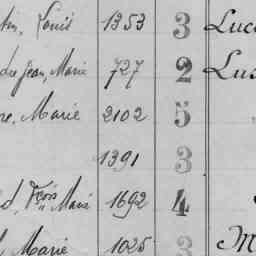 Louis 1353 3 Luc
Jean, Marie 727 2 Lus
re, Marie 2102 5
1391 3
d, Fçois Marie 1692 4
Marie 1025 3 M